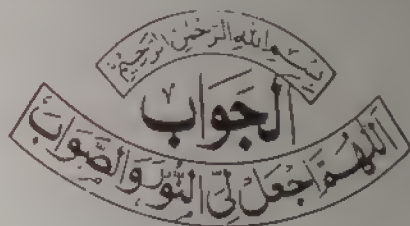 بِسْمِ اللهِ الرَّحْمٰنِ الرَّحِيْمِ
اَلْجَوَابُ
اَللّٰهُمَّ اجْعَلْ لِيَّ النُّوْرَ وَالصَّوَابَ